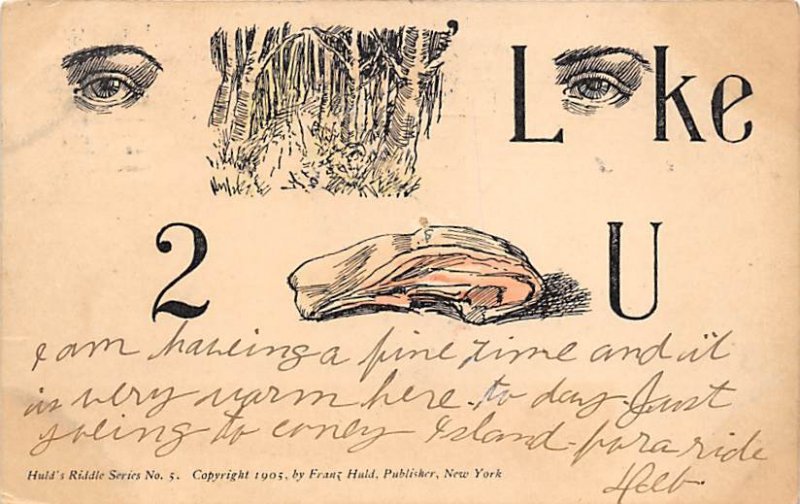 , L ke
2 U
I am haveing a fine time and it
is very warm here to day. Just
goeing to coney Island for a ride
Huld's Riddle Series No. 5. Copyright 1905, by Franz Huld, Publisher, New York